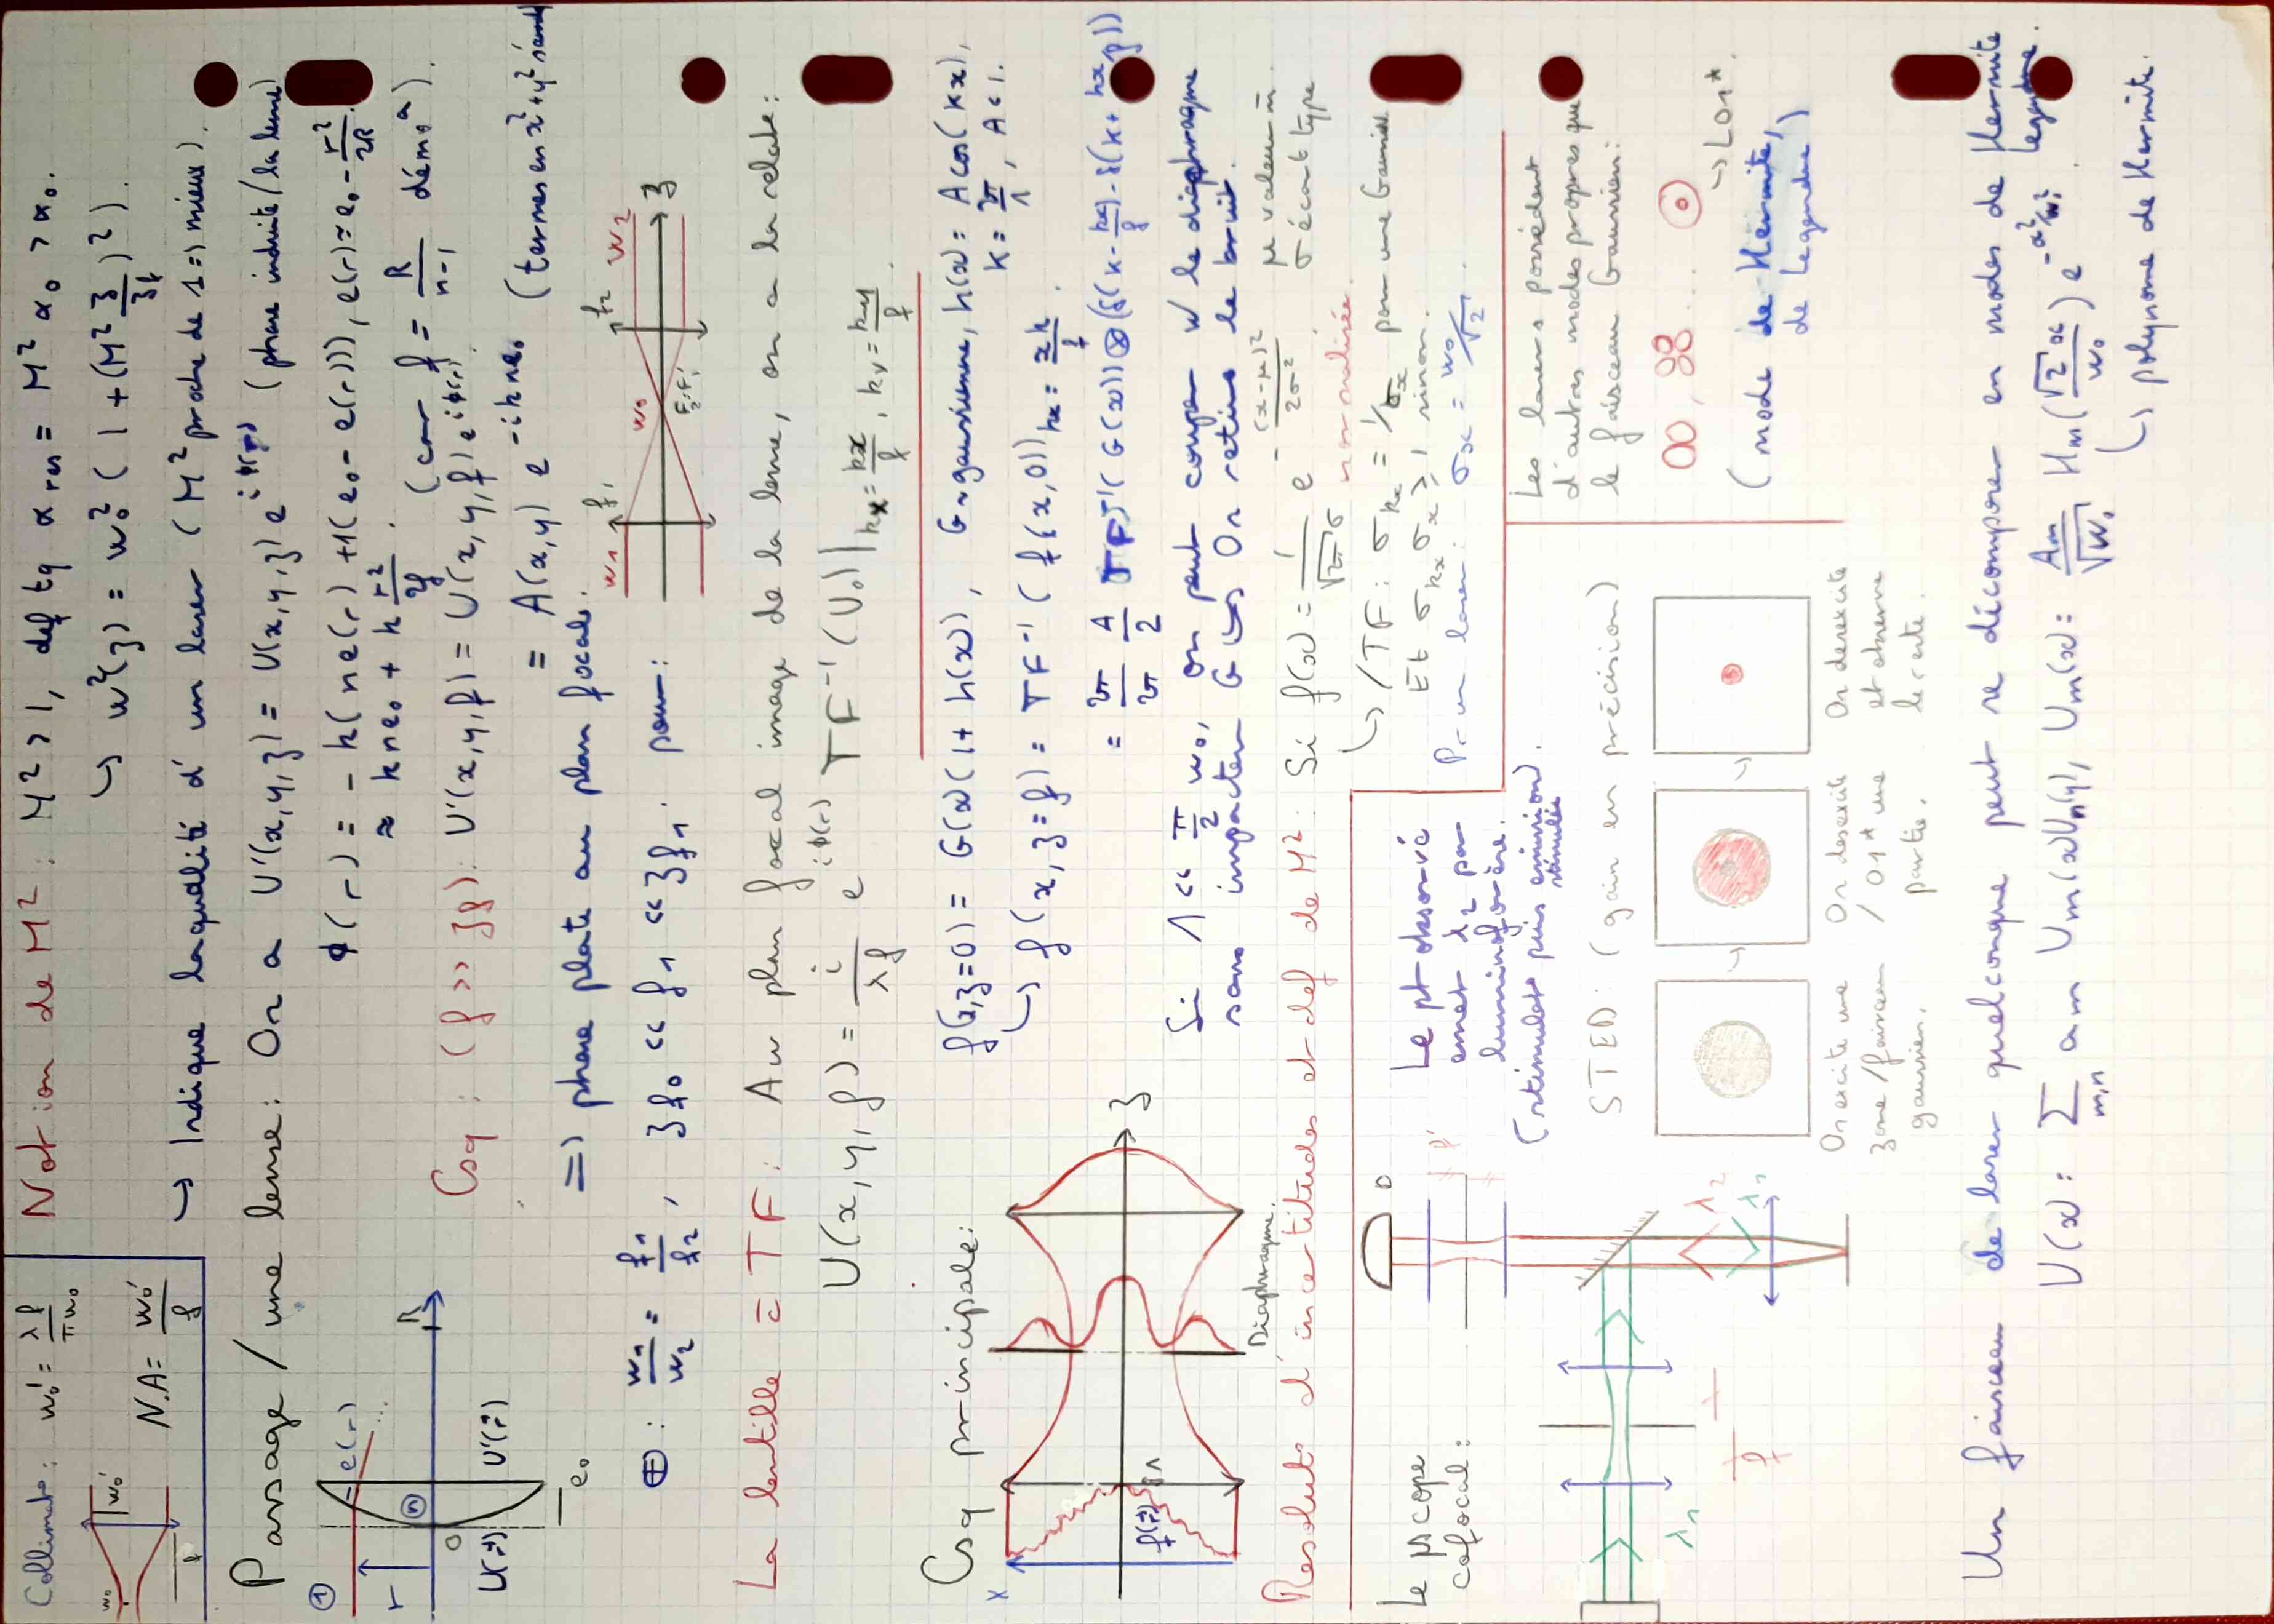 Collimato : w₀' = λf/πw₀
N.A = w₀'/f
w₀
w₀'
f
Notion de M² : M² > 1, def tq α res = M² α₀ > α₀.
↳ w²(z) = w₀² ( 1 + (M² z/zr)² ).
↳ Indique la qualité d'un laser (M² proche de 1 => mieux).
Passage / une lense : On a U'(x,y,z) = U(x,y,z) e^iϕ(r) (phase induite / la lense)
ϕ(r) = - k( n e(r) + 1(e₀ - e(r))), e(r) ≈ e₀ - r²/2R.
≈ kne₀ + k r²/2f. (car f = R/n-1 démo)
①
r
e(r)
n
O
U(r)
U'(r)
e₀
Csq : (f >> zf) : U'(x,y,f) = U(x,y,f) e^iϕ(r).
= A(x,y) e^-ikne₀ (termes en x²+y²
=> phase plate au plan focale.
⊕ : w₁/w₂ = f₁/f₂, zf₀ << f₁ << zf₁. pour :
w₁ f₁ w₀ F₂=F₁' f₂ w₂ z
La lentille = TF : Au plan focal image de la lense, on a la relat° :
U(x,y,f) = i/λf e^iϕ(r) TF⁻¹(U₀)|kx = kx/f, ky = ky/f.
Csq principale :
x
f(r)
Λ
Diaphragme.
z
f(x,z=0) = G(x)(1 + h(x)), G ~ gaussienne, h(x) = A cos(Kx),
K = 2π/Λ, A << 1.
↳ f(x,z=f) = TF⁻¹( f(x,0))kx = xk/f.
= 2π/2π A/2 TF⁻¹(G(x)) ⊗ (δ(K - kx/f) - δ(K + kx/f))
Si Λ << π/2 w₀, on peut couper w le diaphragme
sans impacter G ↳ On retire le bruit.
Resoluto d'incertitudes et def de M² : Si f(x) = 1/√2π σ e^-(x-μ)²/2σ²
μ valeur m̄
σ écart type
normalisée.
↳ /TF : σkx = 1/σx pour une Gaussi
Et σkx σx ≥ 1 sinon.
Pr un laser : σx = w₀/√2.
Le μscope
cofocal :
λ₁
λ₂
λ₁
D
f'
Le pt observé
emet λ₂ par
luminoforène.
(stimulat° puis emission)
stimulée
STED : (gain en précision)
On excite une
zone / faisceau
gaussien.
On desexcite
/ 01* une
partie.
On desexcite
et observe
le reste.
Les lasers possèdent
d'autres modes propres que
le faisceau Gaussien :
↳ 01*
(mode de Hermite,
de Legendre)
Un faisceau de laser quelconque peut se décomposer en modes de Hermite
Legendre.
U(x) = Σ m,n a m Um(x)Un(y), Um(x) = Am/√w. Hm(√2 x/w₀) e^-x²/w².
↳ polynome de Hermite.